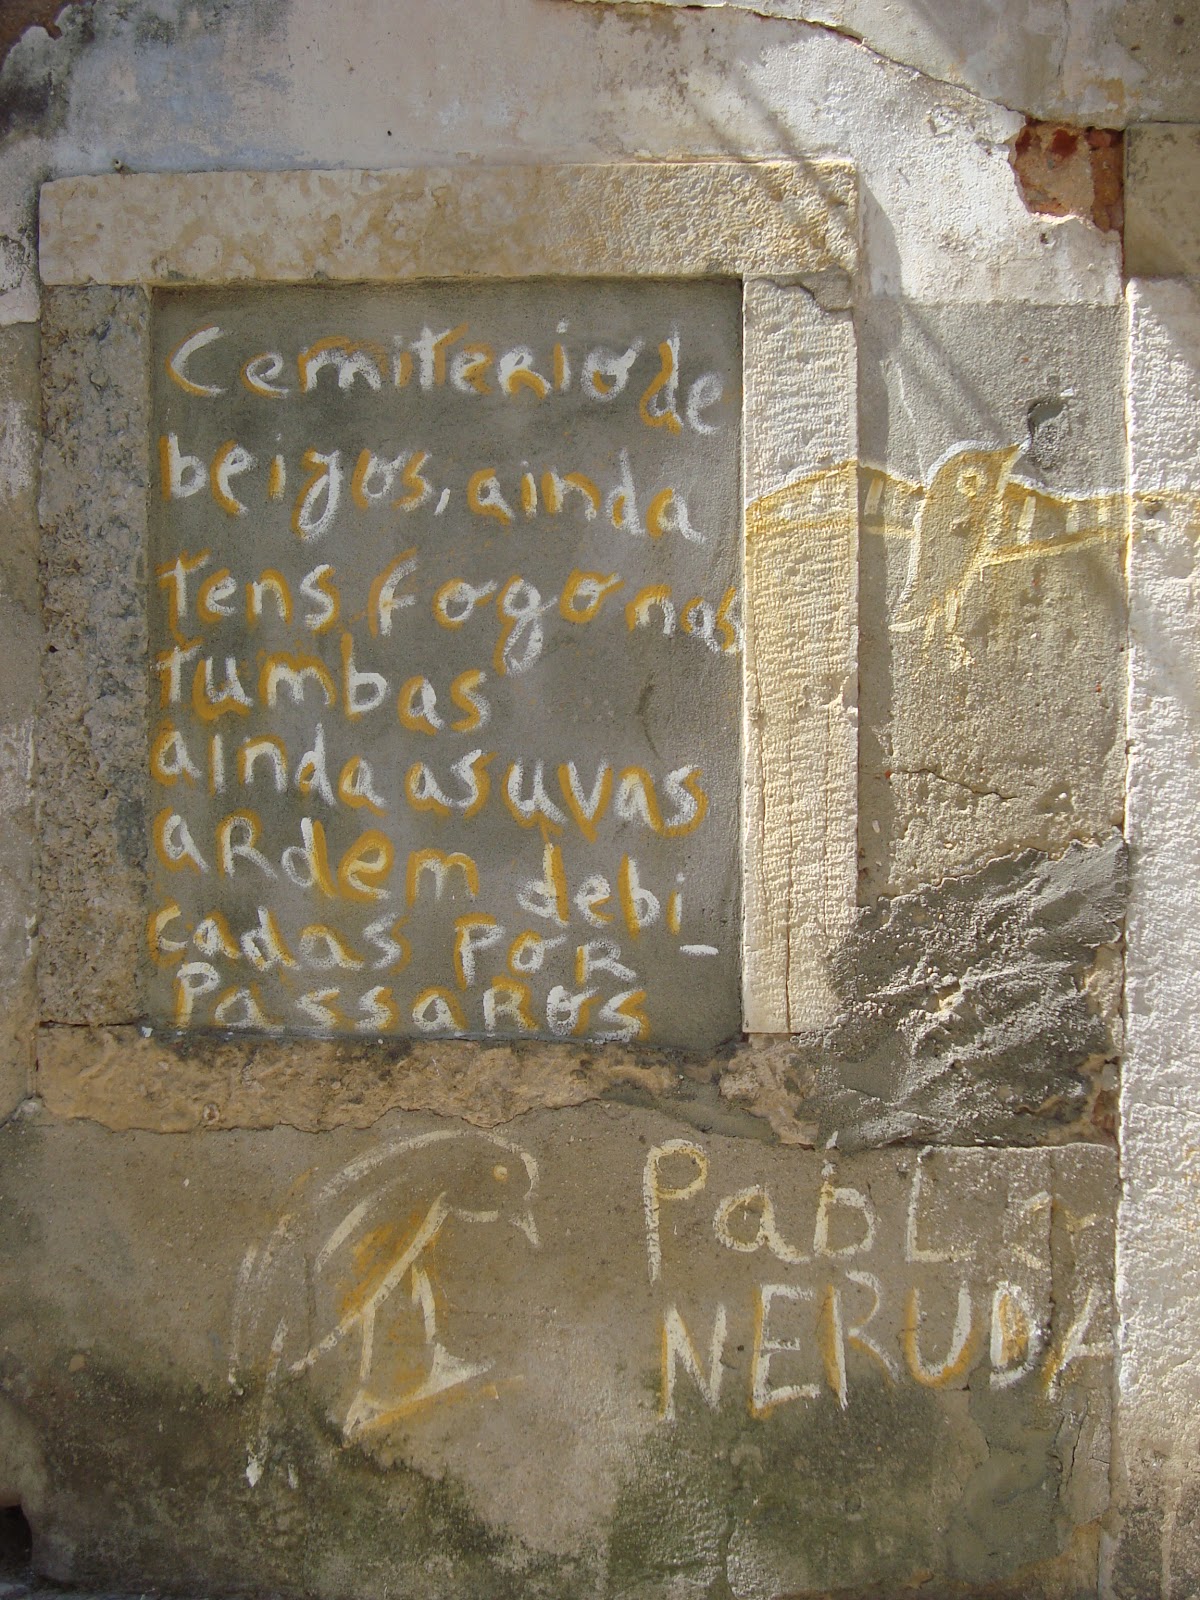 Cemiterio de
beijos, ainda
tens fogo nas
tumbas
ainda as uvas
aRdem debi-
cadas poR
PassaRos
PabLo
NERUDA